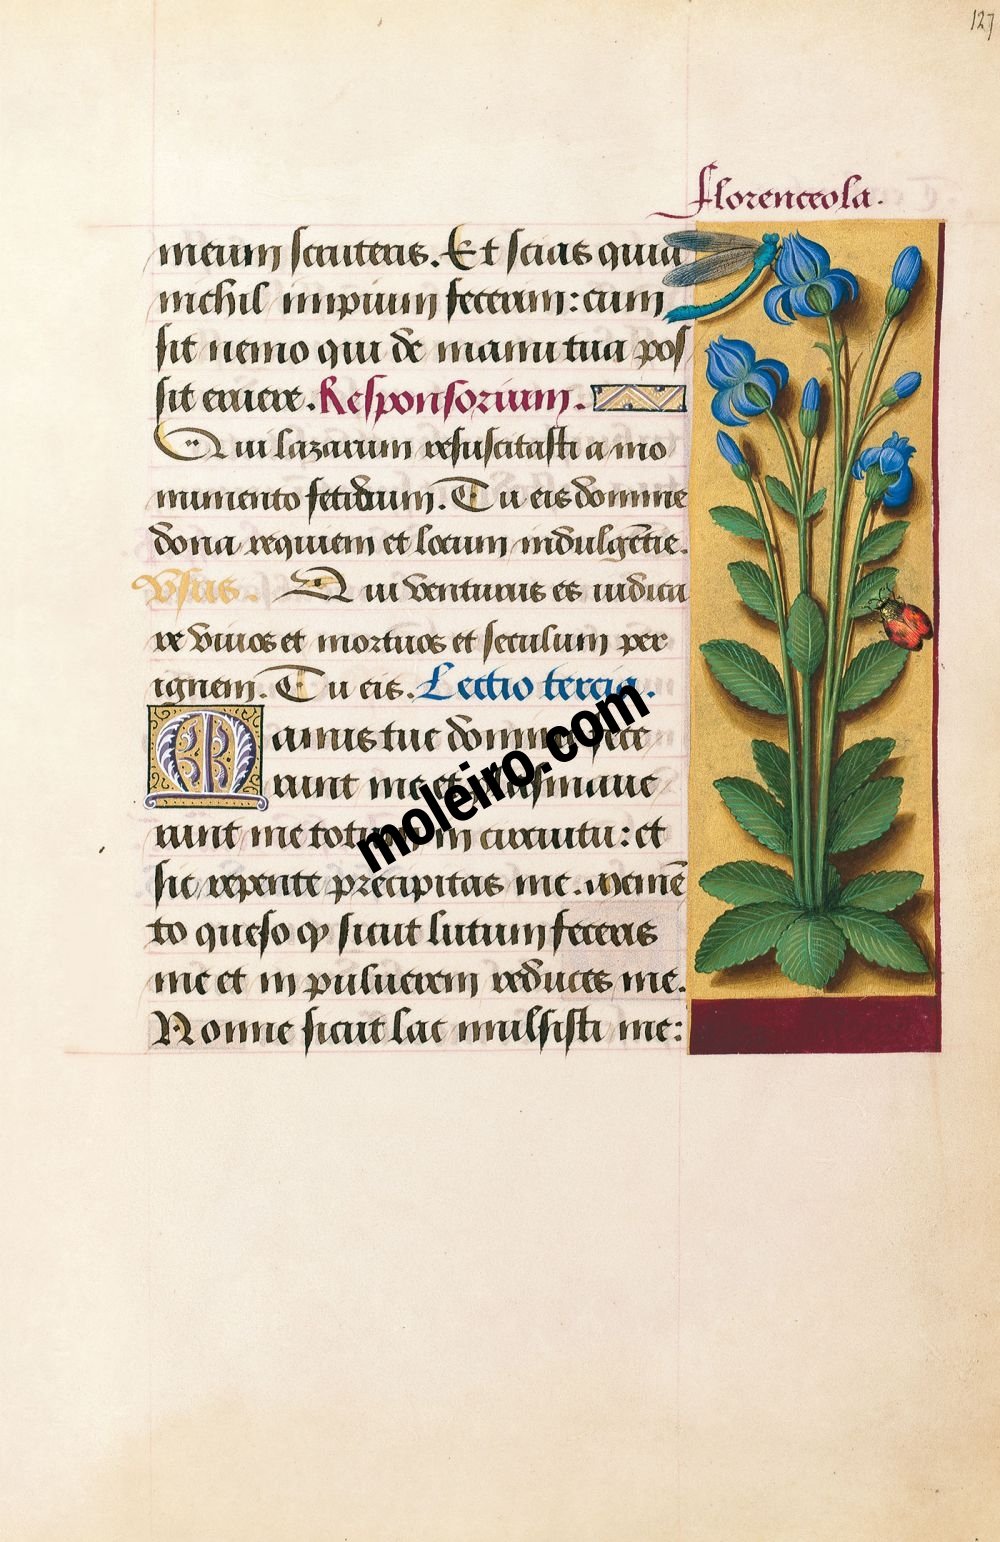 127
florenceola.
meum scruteris. Et scias quia
nichil impium fecerim: cum
sit nemo qui de manu tua pos
sit eruere. Responsorium.
Qui lazarum resuscitasti a mo
numento fetidum. Tu eis domine
dona requiem et locum indulgētie.
Vsus. Qui venturus es iudica
re viuos et mortuos et seculum per
ignem. Tu eis. Lectio tercia.
Manus tue domine fece
runt me et plasmaue
runt me totum in circuitu: et
sic repente precipitas me. Memē
to queso ꝙ sicut lutum feceris
me et in puluerem reduces me.
Nonne sicut lac mulsisti me:
moleiro.com